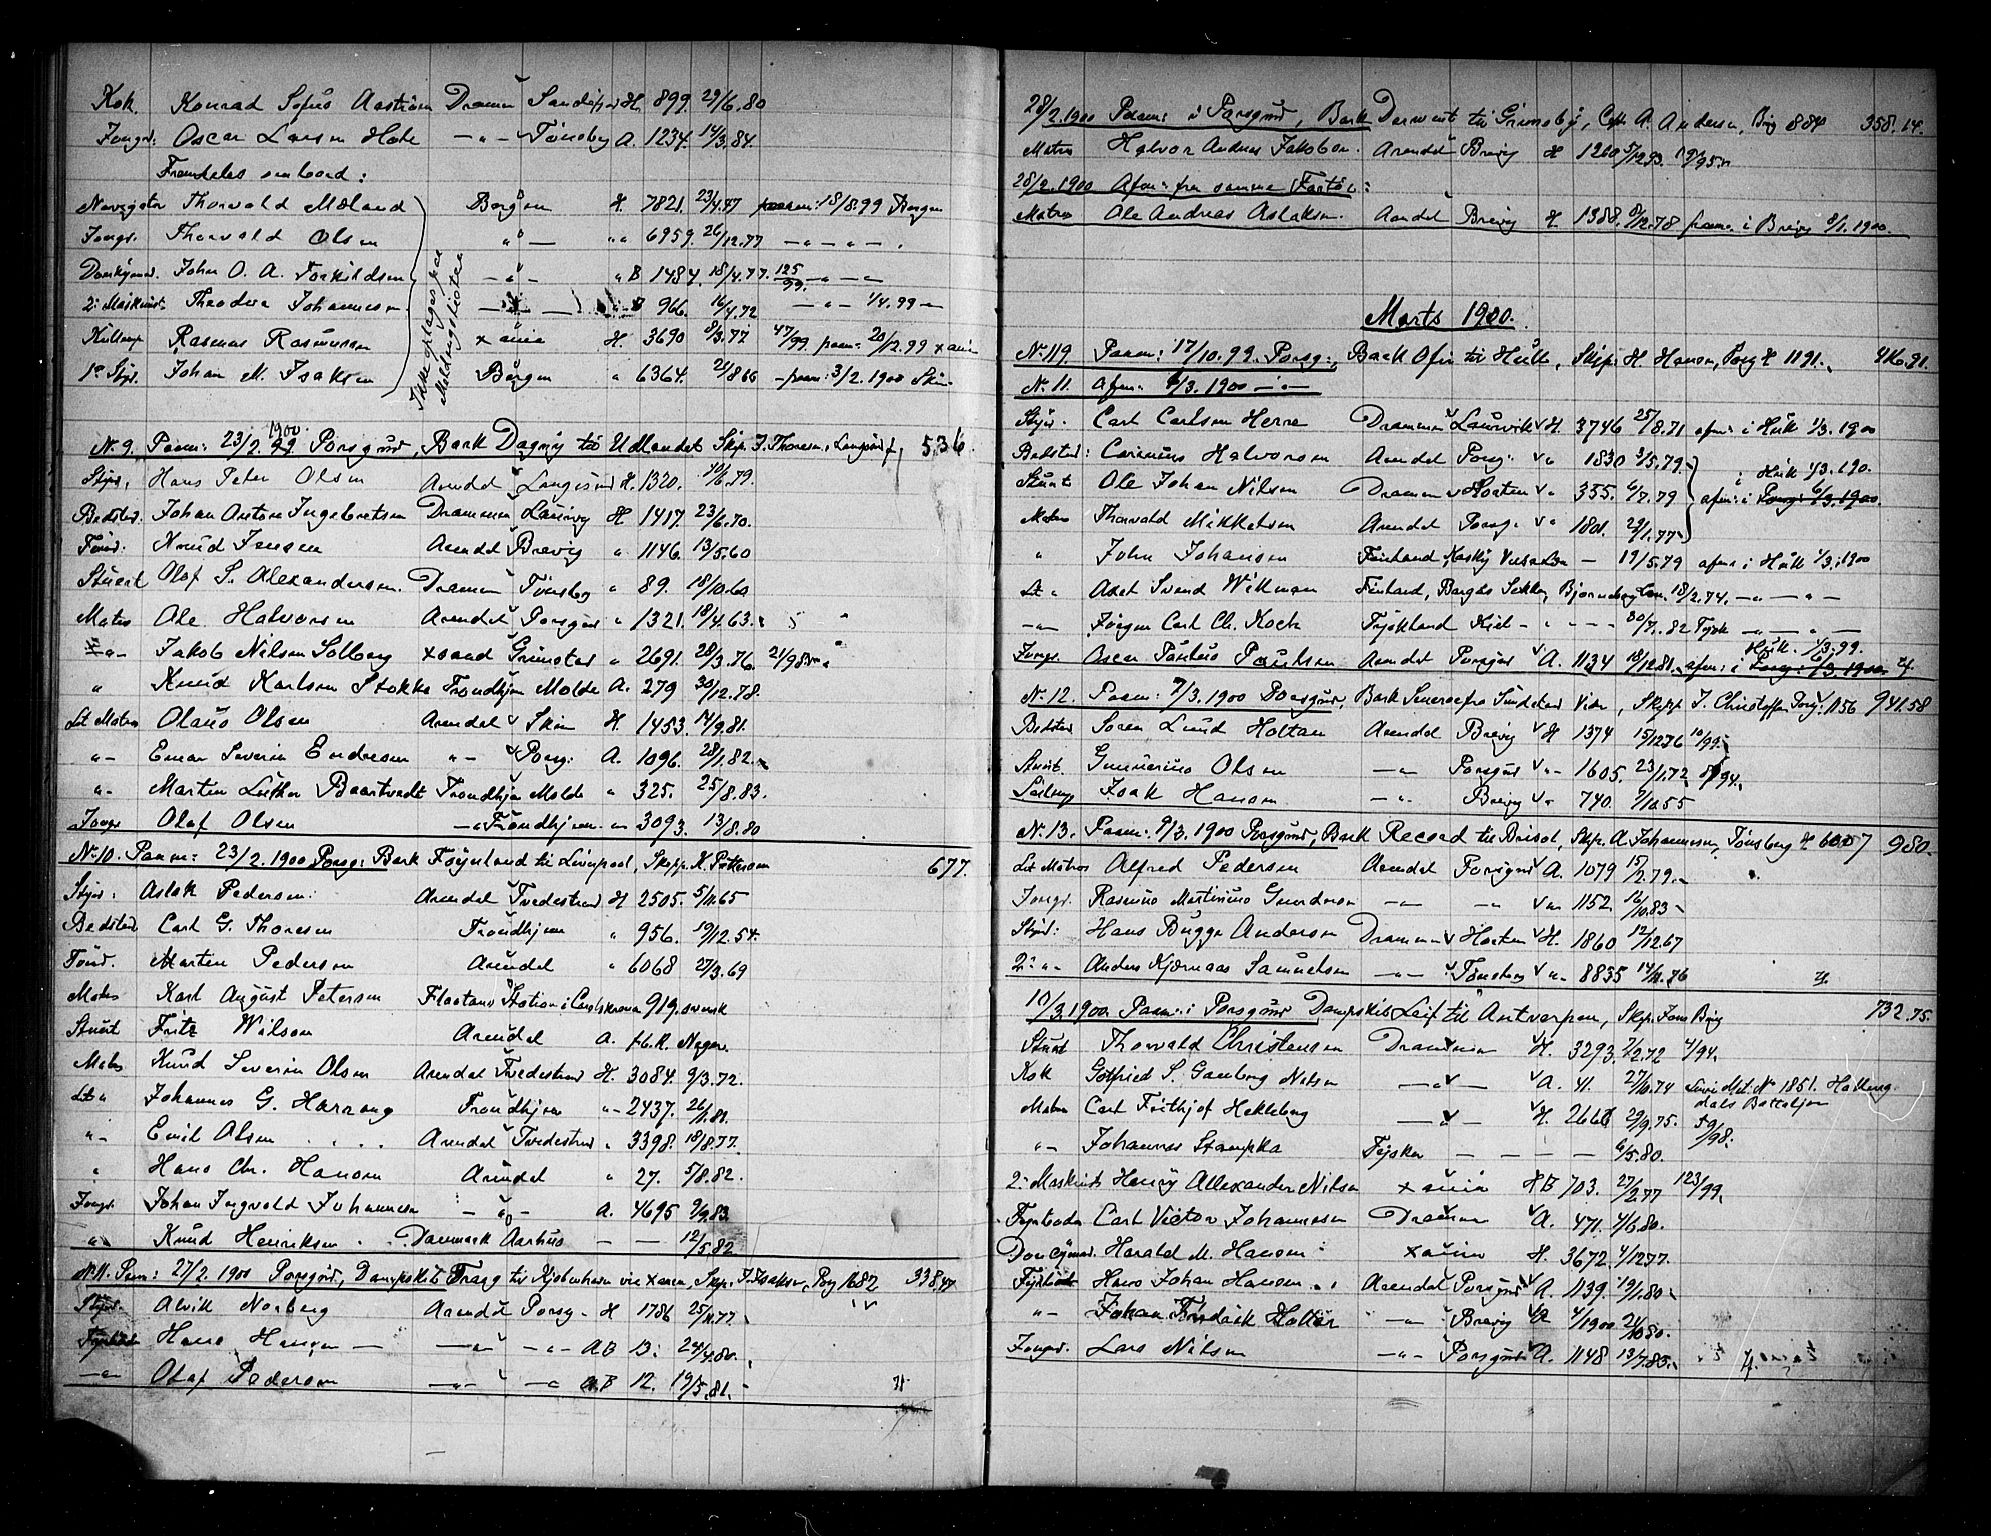 Kok Konrad Sofus Aaström Dramm Sandefjord H. 899. 29/6.80
Jongr: Oscar Larsen Hote — " — Tönsberg A. 1234. 14/3.84.
Fremdeles ombord:
Navigatör Thorvald Mæland Bergen H. 7821. 23/4.47 paam: 18/8.99 Bergen
Jongr. Thorvald Olsen " — " 6959. 26/12.77 — " — " — "
Donkymd. John O. A. Torkildsen — " — " B 1484. 18/4.77. 125/99. — " — "
2: Maskinist Theodor Johannesen — " — B 966. 16/4.72 — " — 1/4.99 — "
Kullemp Rasmus Rasmussen Xania H. 3690 8/3.77 47/99 paam: 20/12.99 Xania
1e Styr. Johan M. Isaksen Bergen " 6364. 2/8 66 — paam: 3/2.1900 Skien
Ikke optages paa Meldingslisten
N. 9. Paam: 23/2. 1900 Porsgrund, Bark Dagny til Udlandet Skip. J. Thoresen, Langesund f, 536.
Styrd. Hans Peter Olsen Arendal Langesund H. 1320. 10/6.79.
Bedstm. Johan Anton Ingebretsen Drammen Laurvig H. 1417. 23/6.70.
Tömd: Knud Jensen Arendal Brevig " 1146. 13/5.60
Stuert Olaf S. Alexandersen. Drammen Tönsberg " 89. 18/10.60
Matros Ole Halvorsen Arendal Porsgrund " 1321. 18/4.63.
— " — Jakob Nilsen Solberg Xsand Grimstad " 2691. 28/3.76.
" Knud Karlsen Stokke Trondhjem Molde A. 279 30/12.78.
Let Matros Olaus Olsen Arendal Skien H. 1453. 14/9.81.
" — Einar Severin Endresen " — Porsg: A. 1096. 28/1.82.
" — Martin Luther Baartvedt Trondhjem Molde " 325. 25/8.83.
Jongr Olaf Olsen — " Trondhjem — " 3093. 13/8.80
N. 10. Paam: 23/2.1900 Porsg: Bark Föynland til Liverpool, Skipp. K. Pettersen 677.
Styrd: Aslak Pedersen: Arendal Tvedestrand H 2505. 5/11.65
Bedstm Carl G. Thoresen Trondhjem " 956. 19/12.54.
Tömd. Martin Pedersen Arendal " 6068 27/3.69
Matros Karl August Petersen Flaatans Station i Carlskrona 919. svensk
Stuert Fritz Wilson Arendal A. f.b.R. Neger.
Matros Knud Severin Olsen Arendal Tvedestrand H. 3084. 9/3.72.
Let " Johannes G. Harrang Trondhjem " — 2437. 26/1.80.
" — Emil Olsen . . . . Arendal Tvedestrand " 3398. 18/8.77.
" Hans Chr. Hansen Arendal " 27. 5/8.82.
Jongr. Johan Ingvald Johannesen — " — A. 4695 9/9.83.
" Knud Henriksen . . Danmark Aarhus — — 12/5.82
N. 11. Paam: 27/2.1900 Porsgrund, Dampskib Tragg til Kjöbenhavn via Xania, Skip. J. Isaksen, Porsg 1682 338.47
Styrd. Alvik Norberg Arendal Porsg — H 1786 25/11.77.
Fyrböter Hans Hansen — — " — " — AB 13. 24/4.80.
— " — Olaf Pedersen — " — — " AB 12. 19/5.81.
28/2.1900 Paam: i Porsgrund, Bark Derwent til Grimsby, Capt. A. Andersen, Brvg 884 358.14.
Matros Halvor Andreas Jakobsen. Arendal Brevig H 1260 5/12.93.
28/2.1900 Afm: fra samme Fartöi:
Matros Ole Andreas Aslaksen. Arendal Brevig H 1388. 8/12.78 paam. i Brevig 9/1.1900.
Marts 1900.
N. 119 Paam: 17/10.99. Porsg:, Bark Ofir til Hull, Skip. H. Hansen, Porsg H 1191. 416.91.
N. 11. Afm: 6/3.1900 — " —
Styrd. Carl Carlsen Herre Drammen Laurvik H. 3746 25/8.71 afm: i Hull 1/3.1900
Bedstm: Carinius Halvorsen Arendal Porsg: " 1830 3/5.79 i Hull 1/3.190.
Stuert Ole Johan Nilsen Drammen Horten " 355. 6/7.79 afm: i Porsg: 6/3.1900.
Matros Thorvald Mikkelsen Arendal Porsg. " 1801. 29/1.77
" John Johansen Finland — 19/5.79 afm: i Hull 1/3.1900
Let " Axel Svend Willman Finland, 18/2.74. — " — " —
— " — Jörgen Carl Ch. Kock Tyskland Kiel — " — — — 30/7.82 Tysk — " — " —
Jongr. Oscar Paulius Paulsen Arendal Porsgrund A. 1134 18/12.81. afm: i Porsg: 6/3.1900 Hull. 1/3.99. H
N. 12. Paam: 7/3.1900 Porsgrund, Bark , Skipp. J. Christoffersen Porsg. 1156 941.58
Bedstm Sören Lund Holtan Arendal Brevig H 1374 15/12.76
Stuert. Gunnerius Olsen — " Porsgrund " — 1605. 23/1.72
Seilmgr Isak Hansen — " Brevig " 740. 7/10.55
N. 13. Paam: 9/3.1900 Porsgrund, Bark Record til Bristol, Skip. A. Johannesen, Tönsberg H 6007 980.
Let Matros Alfred Pedersen Arendal Porsgrund A. 1079 15/2.79.
Jongr. Rasmus Martinius Gundersen — " — " " 1152. 16/10.83
Styrd: Hans Bugge Andersen Drammen Horten H. 1860 12/12.67
2: " Anders Kjærnaas Samuelsen — " Tönsberg " 8835 14/11.76 H.
10/3.1900 Paam: i Porsgrund Dampskib Leif til Antverpen, Skip. Brvg 732.75.
Stuert Thorvald Christensen Drammen H. 3293. 7/2.72 4/94.
Kok Gotfried S. Gamborg Nilsen — " — A. 41. 27/10.74 Linie Mat. No 1851. Hallingdals Bataljon
Matros Carl Frithjof Hekleberg — — H. 2666 29/9.75. 59/98.
" — Johannes Stampka Tysker — — — — 6/5.80.
2: Maskinist Henry Allexander Nilsen Xania HB 703. 27/2.77 123/99.
Fyrböter Carl Victor Johannesen Drammen A. 471. 4/6.80.
Donkymd. Harald M. Hansen: Xania H. 3672. 4/12.77.
Fyrböter Hans Johan Hansen. Arendal Porsgrund A. 1139. 19/1.80
" — Johan Fredrik Holter — " Brevig A 4/1900 21/10.80.
Jongr. Lars Nilsen — " Porsgrund A. 1148 13/7.85. H.